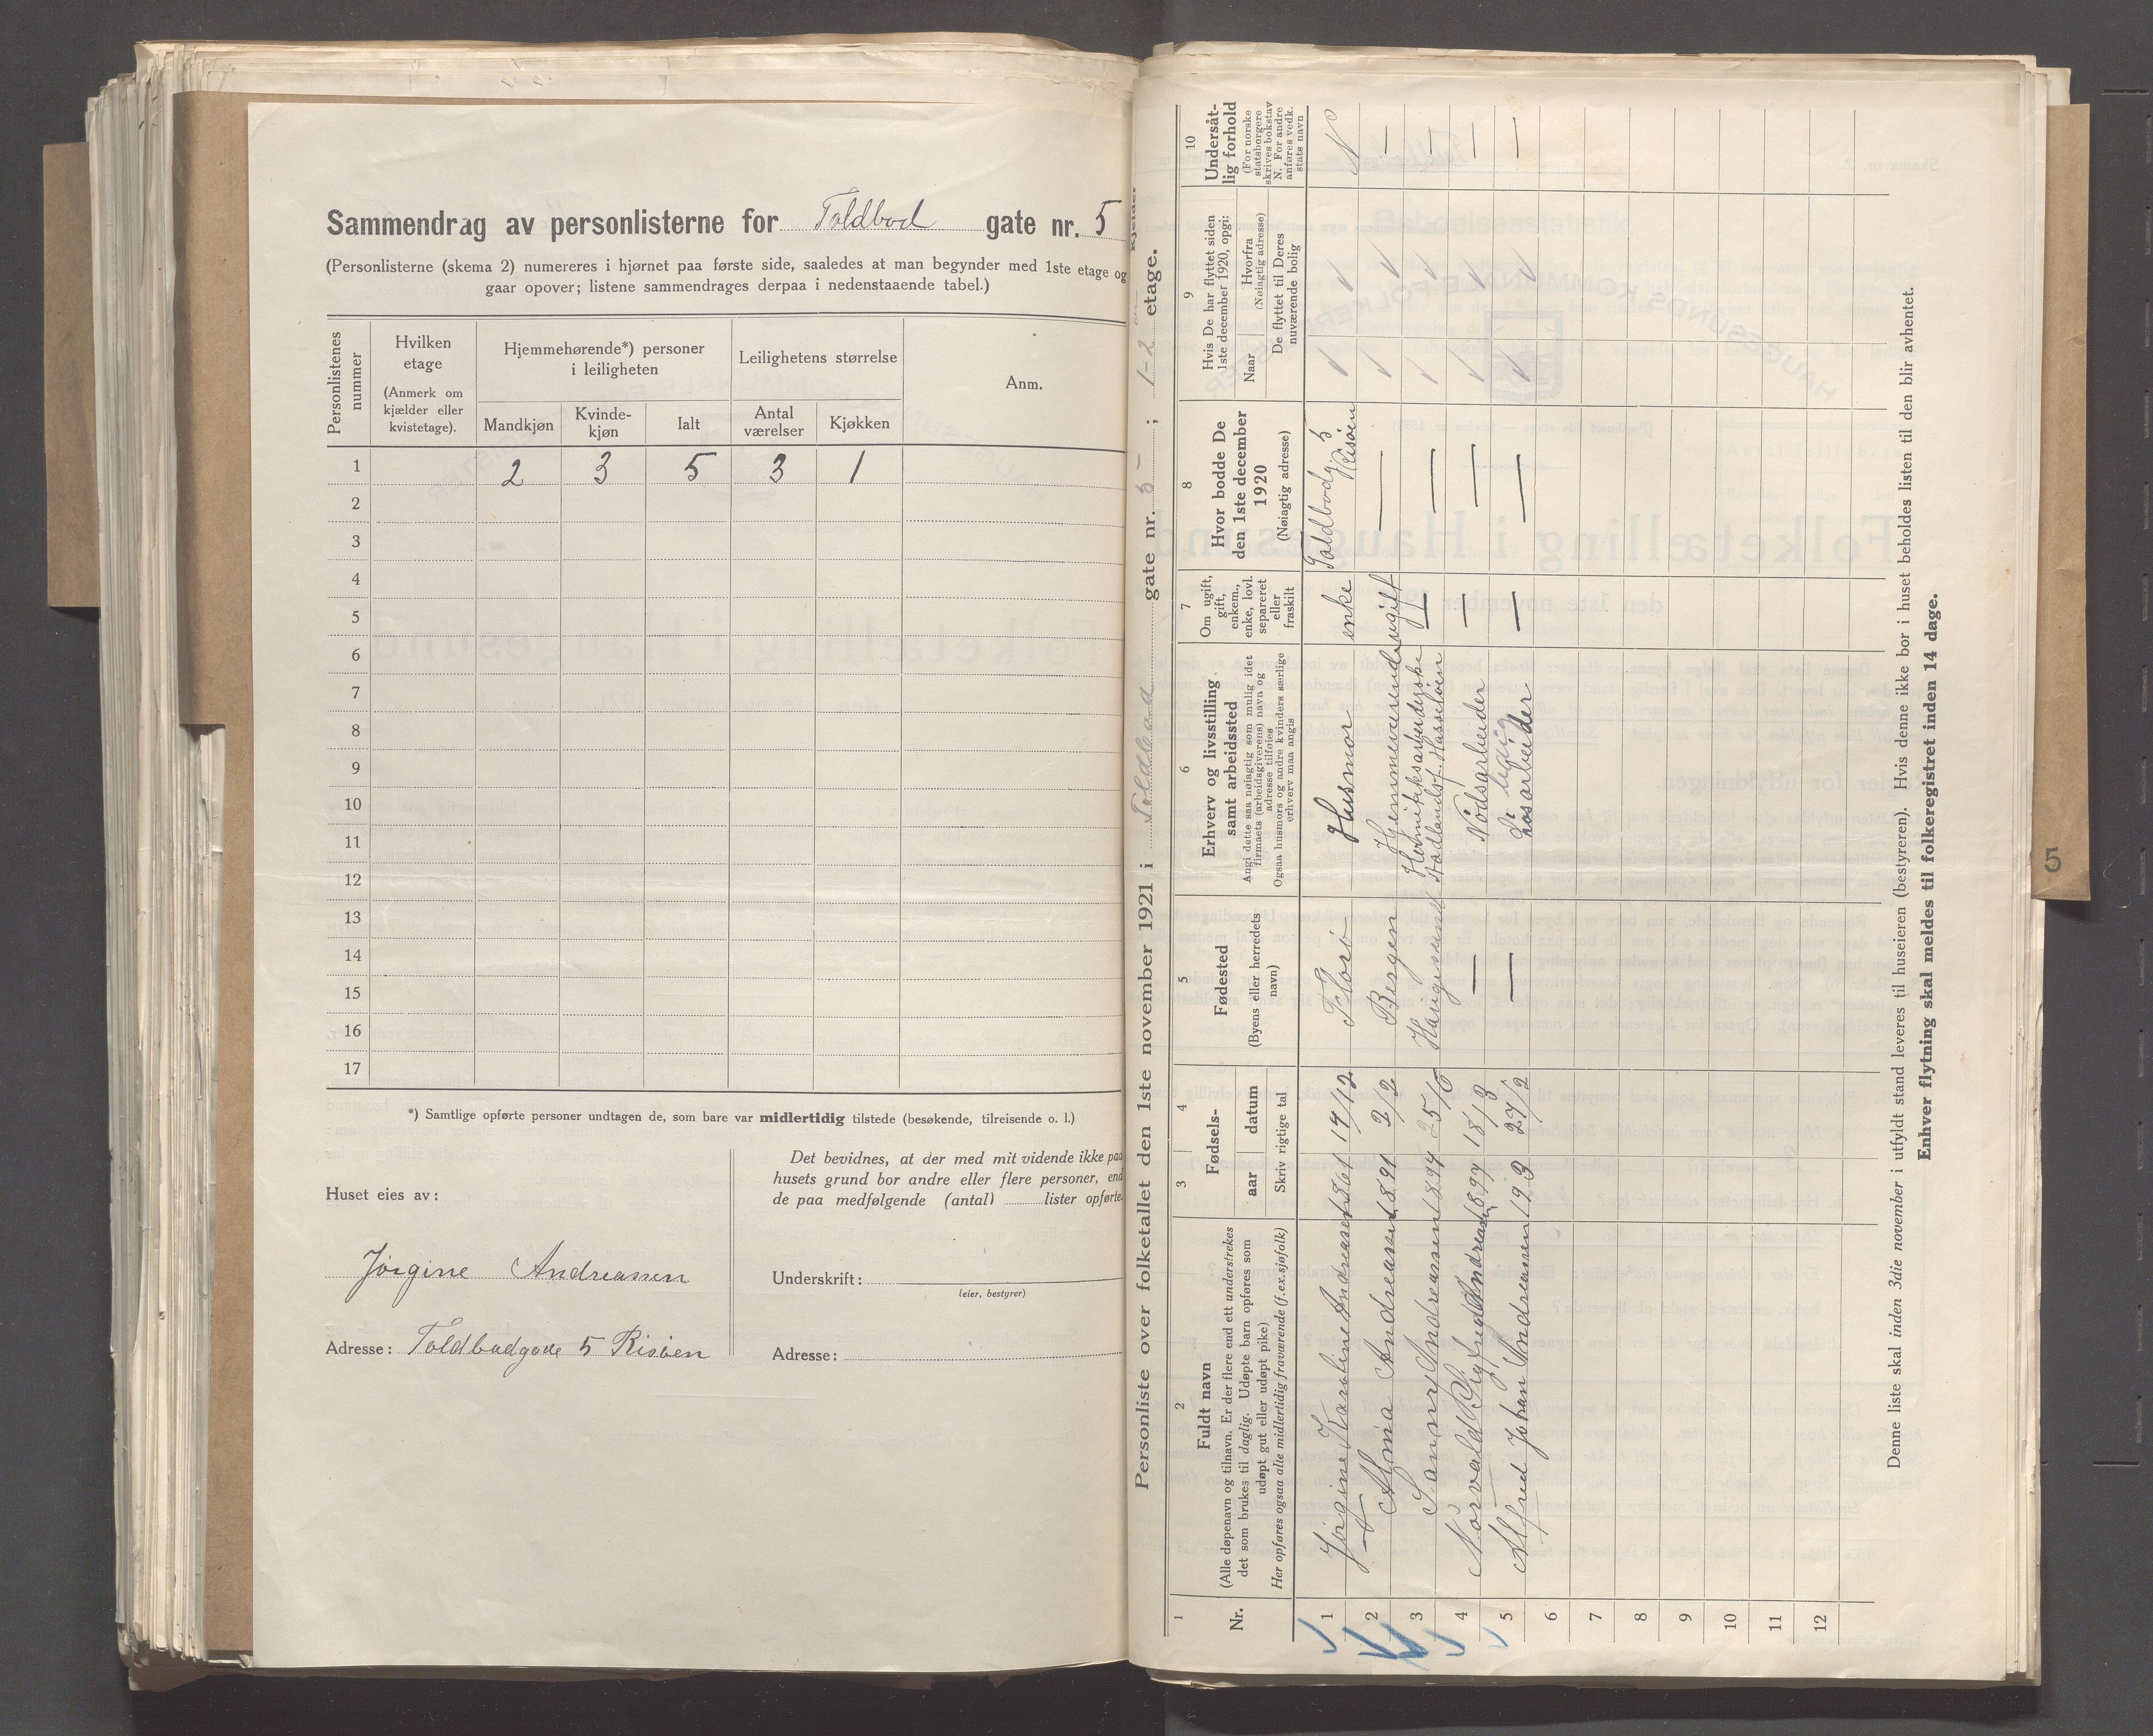 Sammendrag av personlisterne for Toldbod gate nr. 5
(Personlisterne (skema 2) numereres i hjørnet paa første side, saaledes at man begynder med 1ste etage og
gaar opover; listene sammendrages derpaa i nedenstaaende tabel.)
Personlistenes nummer
Hvilken etage (Anmerk om kjælder eller kvistetage).
Hjemmehørende*) personer i leiligheten
Leilighetens størrelse
Anm.
Mandkjøn Kvindekjøn Ialt Antal værelser Kjøkken
1 2 3 5 3 1
2
3
4
5
6
7
8
9
10
11
12
13
14
15
16
17
*) Samtlige opførte personer undtagen de, som bare var midlertidig tilstede (besøkende, tilreisende o. l.)
Huset eies av:
Jørgine Andreassen
Adresse: Toldbodgade 5 Risøen
Det bevidnes, at der med mit vidende ikke paa
husets grund bor andre eller flere personer, end
de paa medfølgende (antal) lister opførte.
Underskrift:
(eier, bestyrer)
Adresse:
Personliste over folketallet den 1ste november 1921 i Toldbod gate nr. 5 ; 1-2 etage.
1 Nr.
2 Fuldt navn
(Alle døpenavn og tilnavn. Er der flere end ett understrekes
det som brukes til daglig. Udøpte barn opføres som
udøpt gut eller udøpt pike)
Her opføres ogsaa alle midlertidig fraværende (f.ex. sjøfolk)
3 4 Fødsels-
aar datum
Skriv rigtige tal
5 Fødested
(Byens eller herredets navn)
6 Erhverv og livsstilling
samt arbeidssted
Angi dette saa nøiagtig som mulig idet
firmaets (arbeidsgiverens) navn og
adresse tilføies
Ogsaa husmors og andre kvinders særlige
erhverv maa angis
7 Om ugift, gift, enkem., enke, lovl. separeret eller fraskilt
8 Hvor bodde De
den 1ste december
1920
(Nøiagtig adresse)
9 Hvis De har flyttet siden
1ste december 1920, opgi:
Naar Hvorfra (Nøiagtig adresse)
De flyttet til Deres nuværende bolig
10 Undersåtlig forhold
(For norske statsborgere skrives bokstav N. For andre anføres vedk. stats navn
1 Jørgine Karoline Andreassen 1861 14/12 Florø Husmor enke Toldbodg 5 Risøen N
2 Alma Andreassen 1891 2/2 Bergen Hjemmeværende ugift — —
3 Sanny Andreassen 1894 25/6 Haugesund Hermetikksarbeiderske Hasseløen — — —
4 Norvald Sigfred Andreassen 1897 18/3 — Nødsarbeider — — —
5 Alfred Johan Andreassen 27/2 — — — —
6
7
8
9
10
11
12
Denne liste skal inden 3die november i utfyldt stand leveres til huseieren (bestyreren). Hvis denne ikke bor i huset beholdes listen til den blir avhentet.
Enhver flytning skal meldes til folkeregistret inden 14 dage.
5